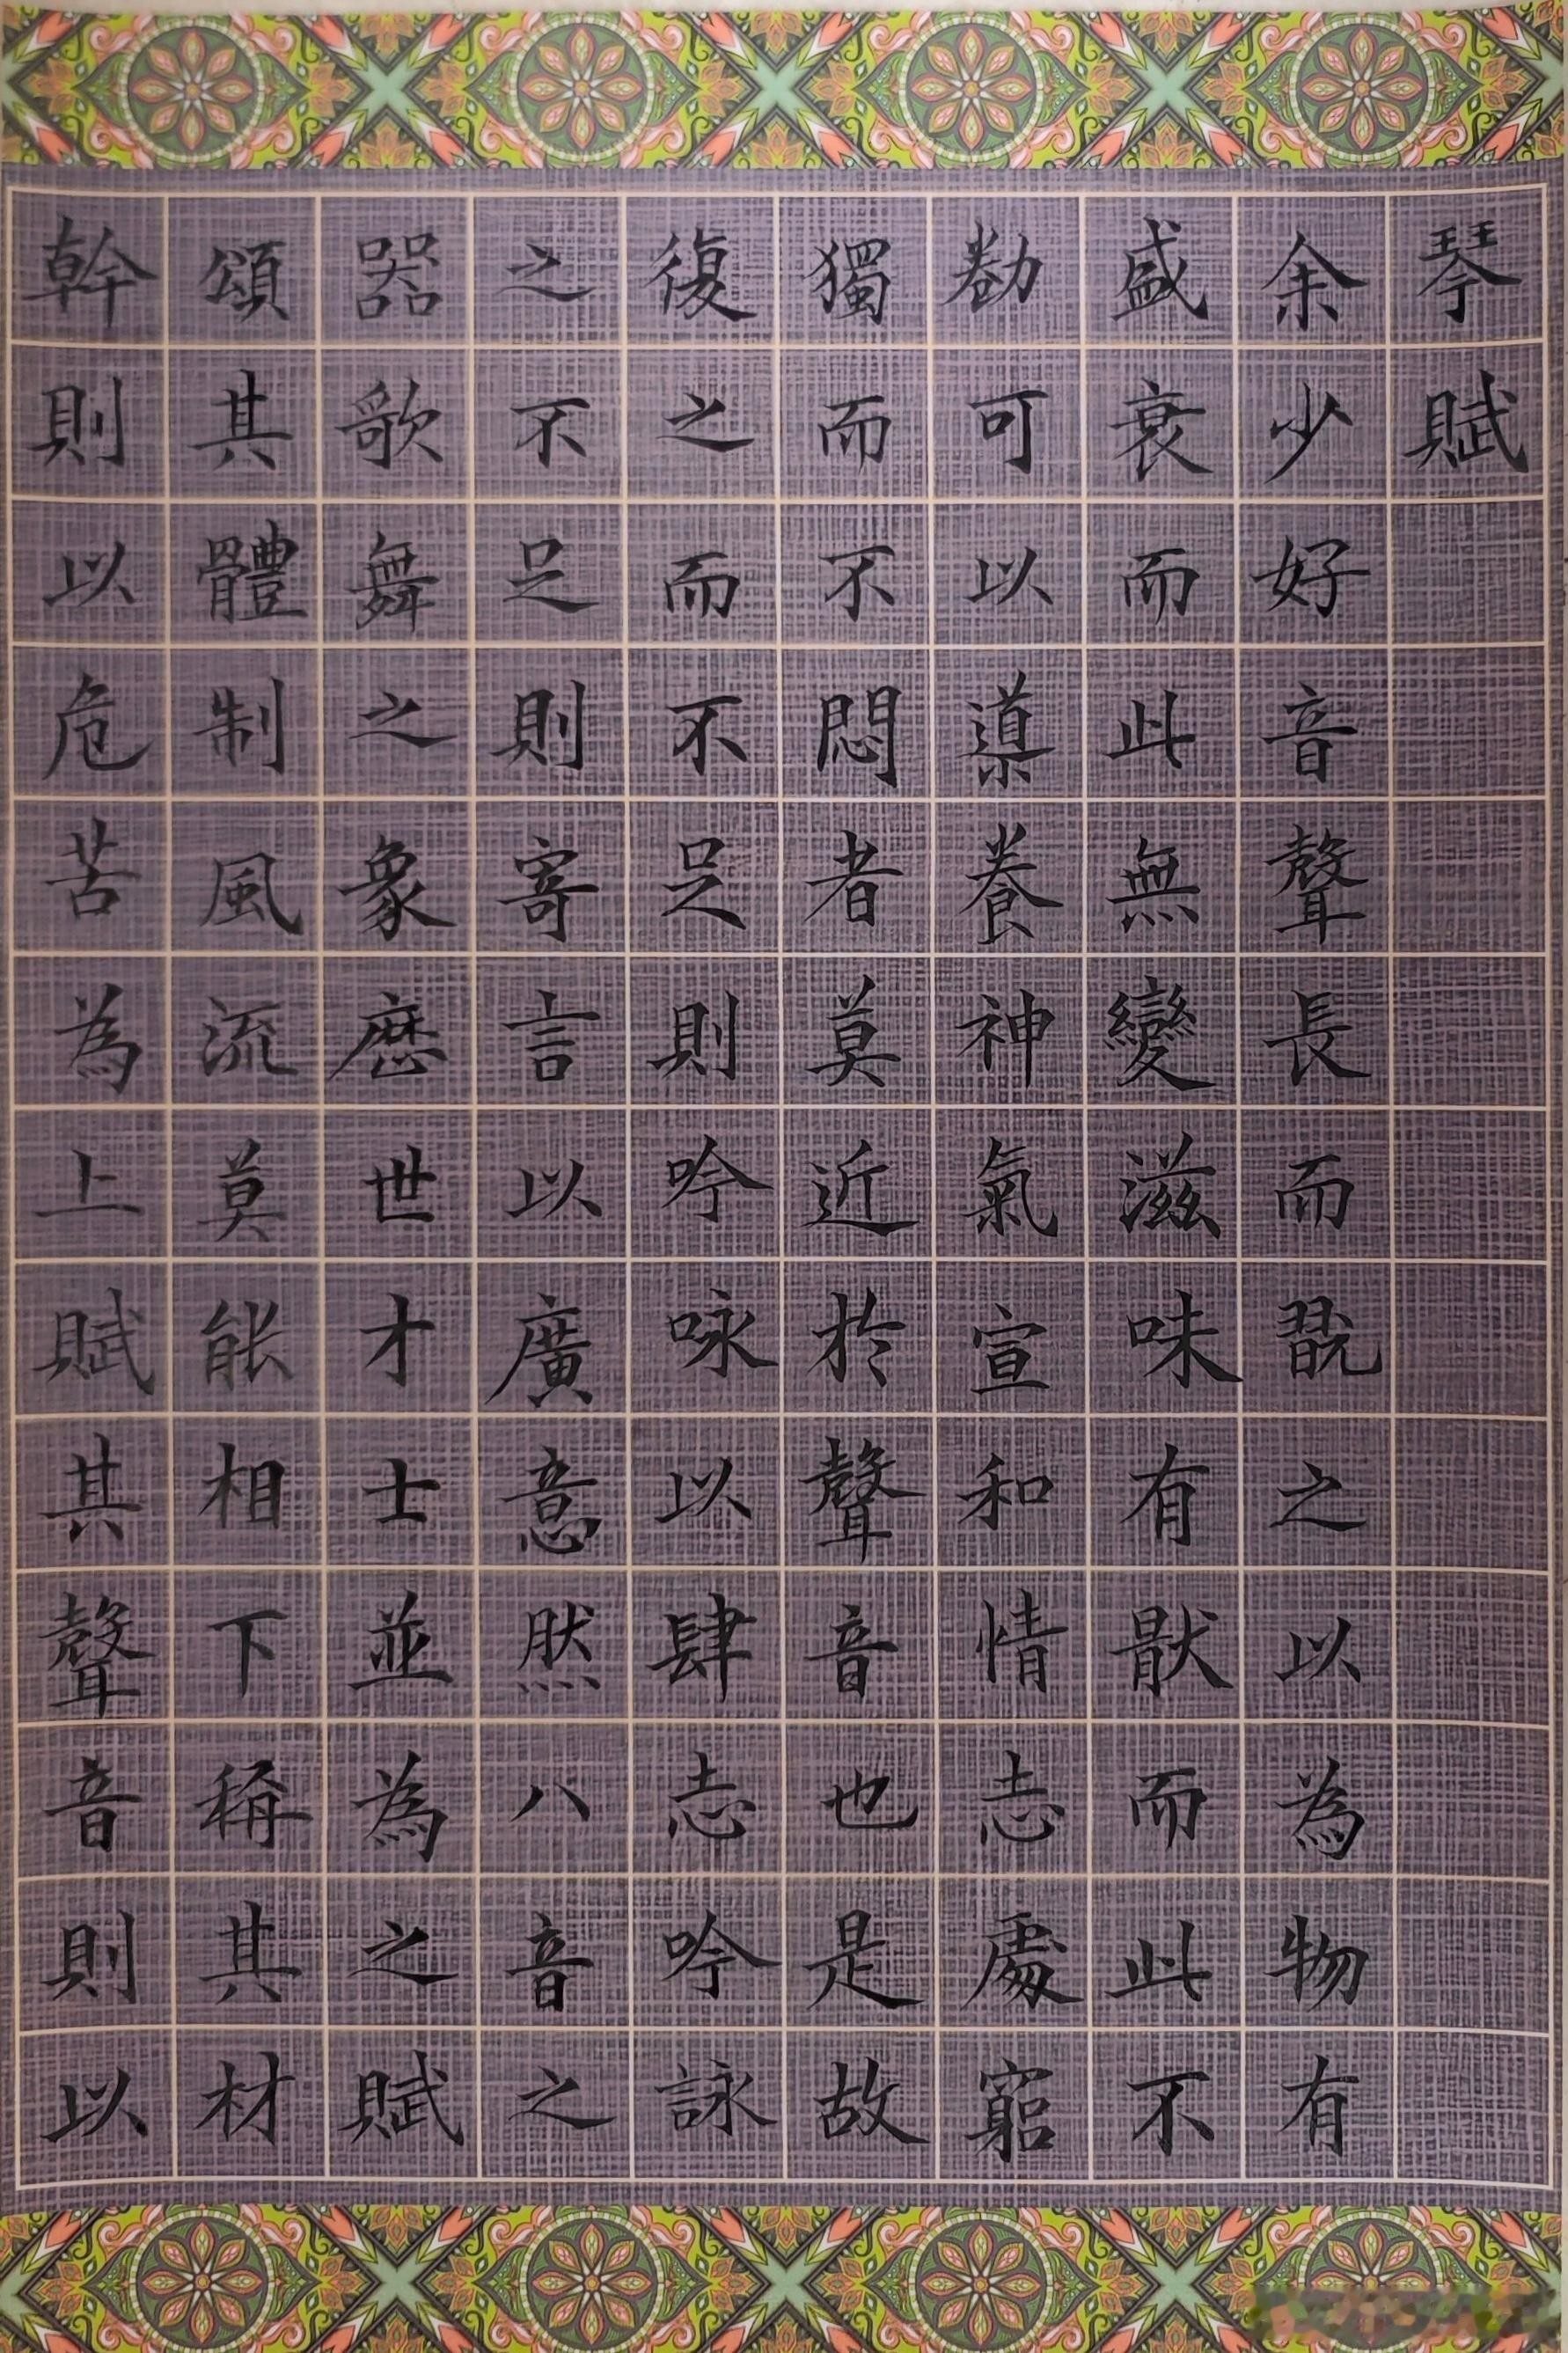 琴賦
余少好音聲長而翫之以為物有
盛衰而此無變滋味有猒而此不
勌可以導養神氣宣和情志處窮
獨而不悶者莫近於聲音也是故
復之而不足則吟咏以肆志吟詠
之不足則寄言以廣意然八音之
器歌舞之象歷世才士並為之賦
頌其體制風流莫能相下稱其材
幹則以危苦為上賦其聲音則以